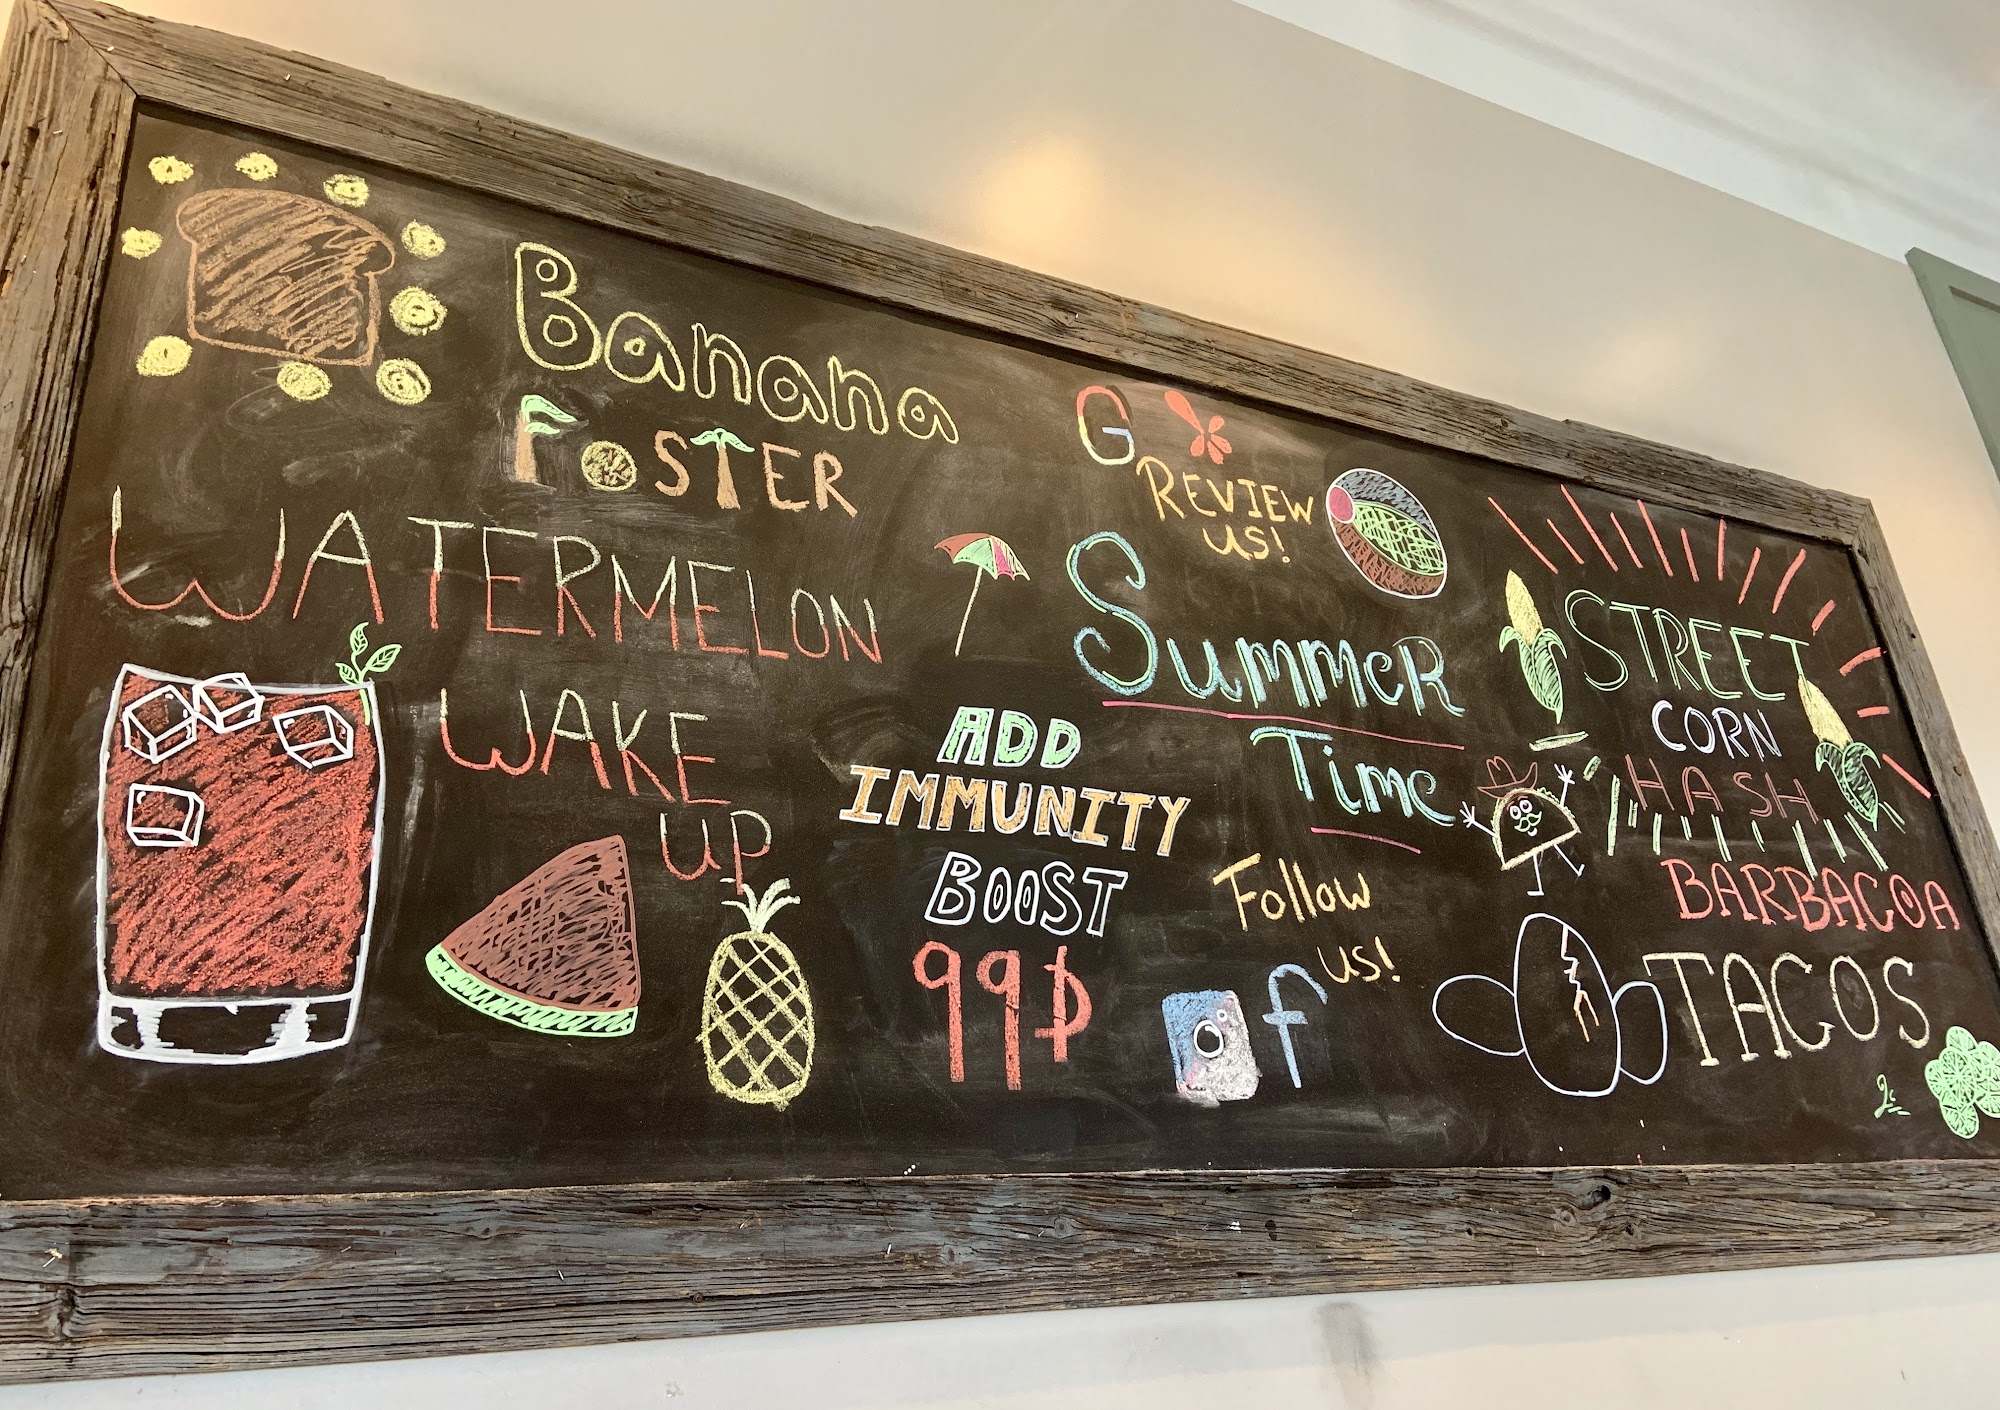 Banana
FOSTER
WATERMELON
WAKE
UP
ADD
IMMUNITY
BOOST
99¢
G
REVIEW
US!
Summer
Time
Follow
us!
f
STREET
CORN
HASH
BARBACOA
TACOS